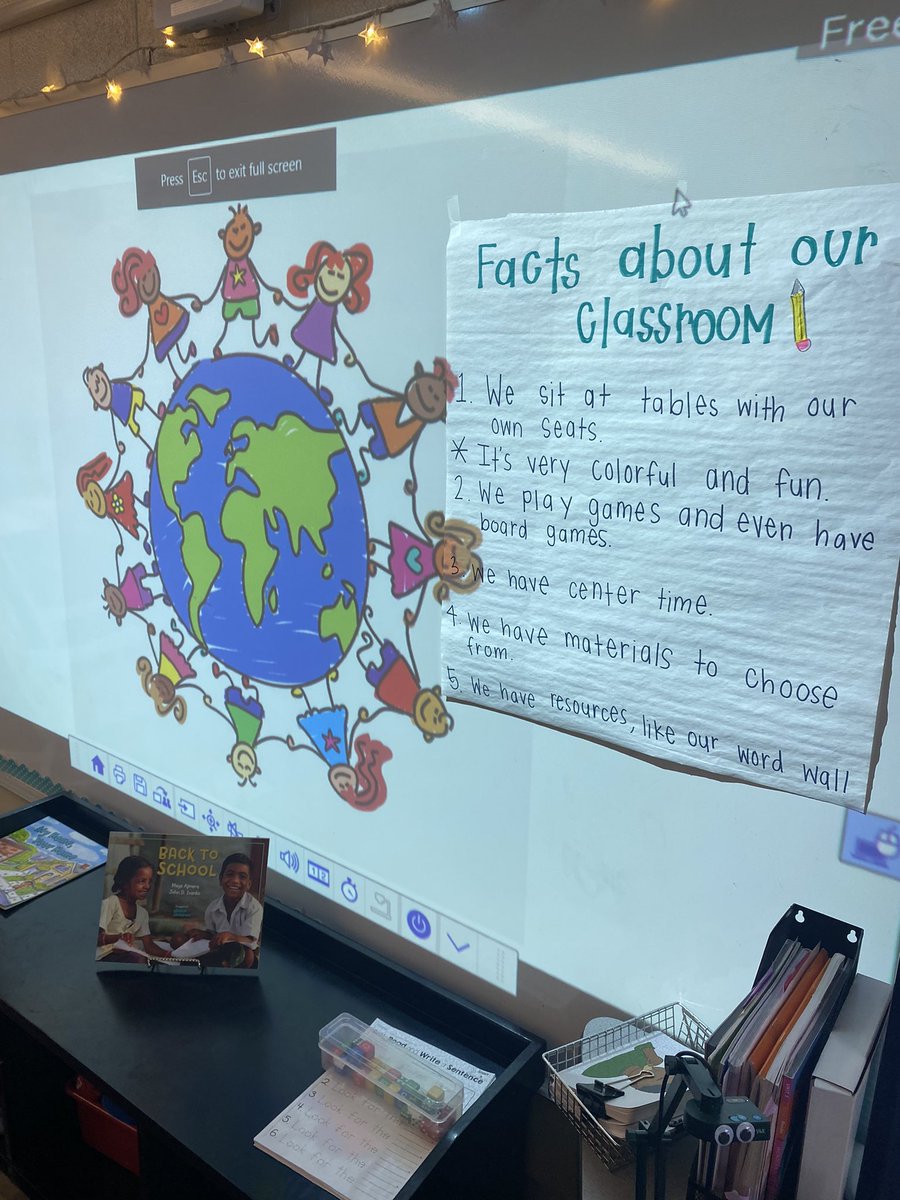 Free
Press Esc to exit full screen
Facts about our
Classroom
1. We sit at tables with our
own seats.
* It's very colorful and fun.
2. We play games and even have
board games.
3. We have center time.
4. We have materials to choose
from.
5. We have resources, like our word wall
BACK TO
SCHOOL
Maya Ajmera
John D. Ivanko
Read and Write a Sentence
2 Look for the
3 Look for the
4 Look for the
5 Look for the
6 Look for the